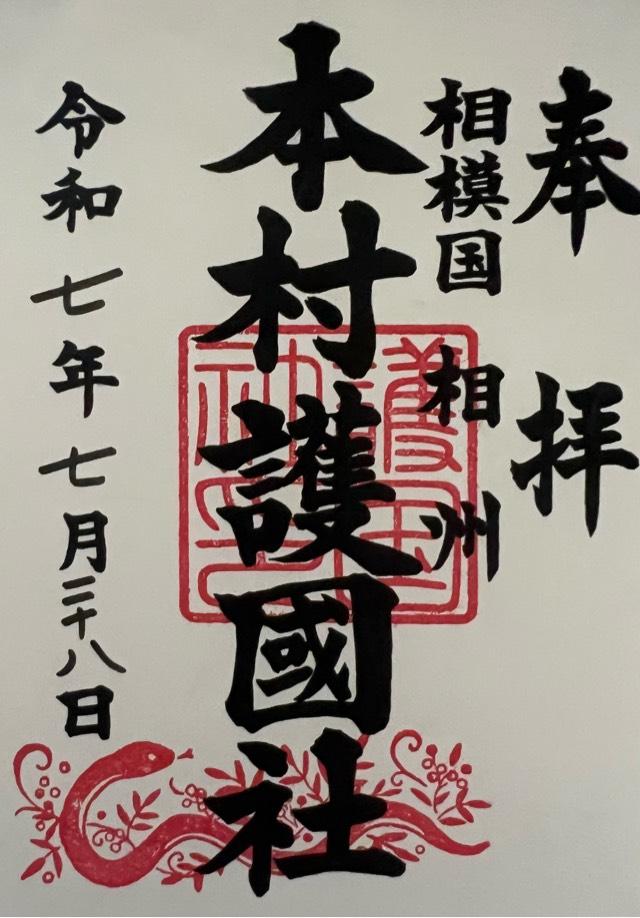 奉拝
相模国 相州
本村護國社
令和七年七月二十八日